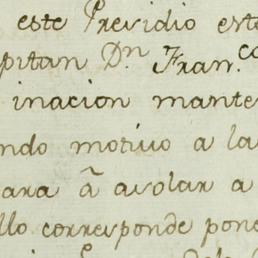 este Presidio est
pitan Dn Franco
inacion mante
ndo motivo a la
ara â asolar a
llo corresponde pone